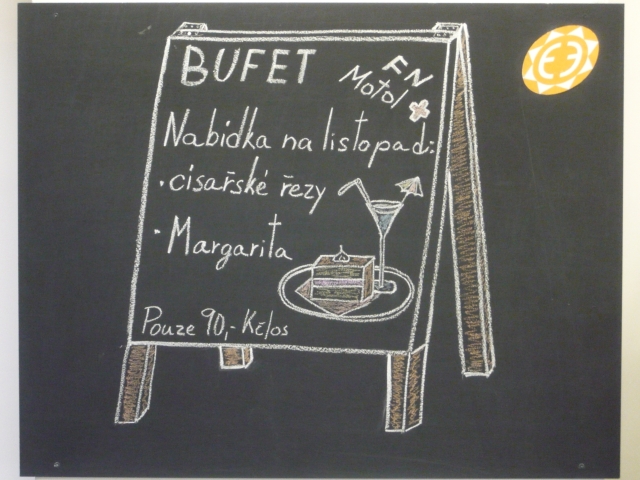 BUFET
FN
Motol
Nabídka na listopad:
· cisařské řezy
· Margarita
Pouze 90,- Kč/os